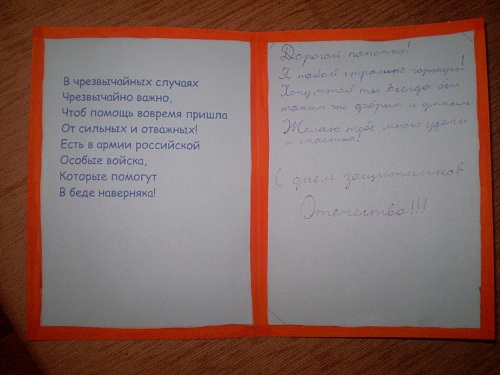 В чрезвычайных случаях
Чрезвычайно важно,
Чтоб помощь вовремя пришла
От сильных и отважных!
Есть в армии российской
Особые войска,
Которые помогут
В беде наверняка!
Дорогой папочка!
Я тобой страшно горжусь!
Хочу, чтоб ты всегда был
таким же добрым и умным.
Желаю тебе много удачи
и счастья!
С днем защитников
Отечества!!!